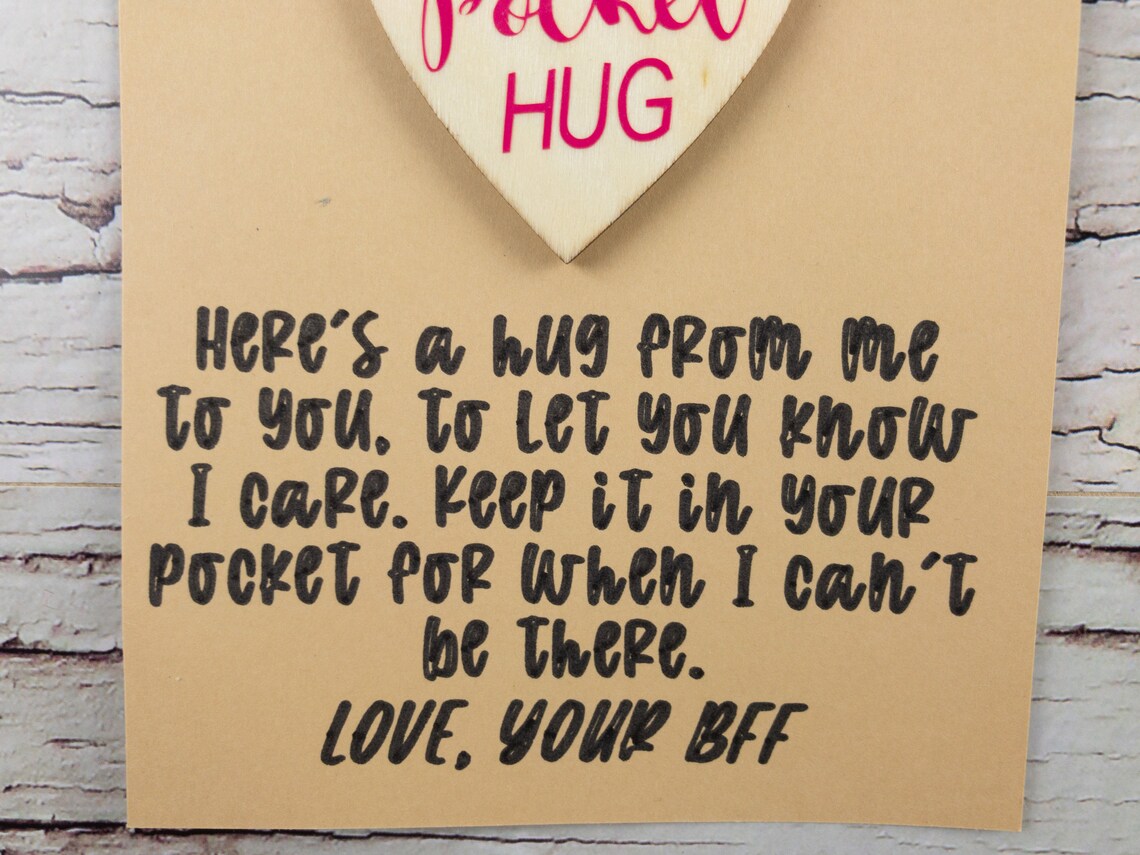 Pocket
HUG
Here's a hug from me
to you, to let you know
I care. Keep it in your
pocket for when I can't
be there.
LOVE, YOUR BFF